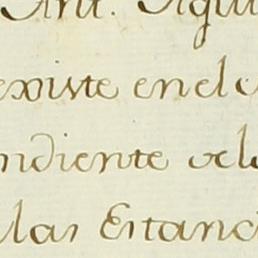 Ant. Agui
existe en el c
ndiente de l
las Estanc